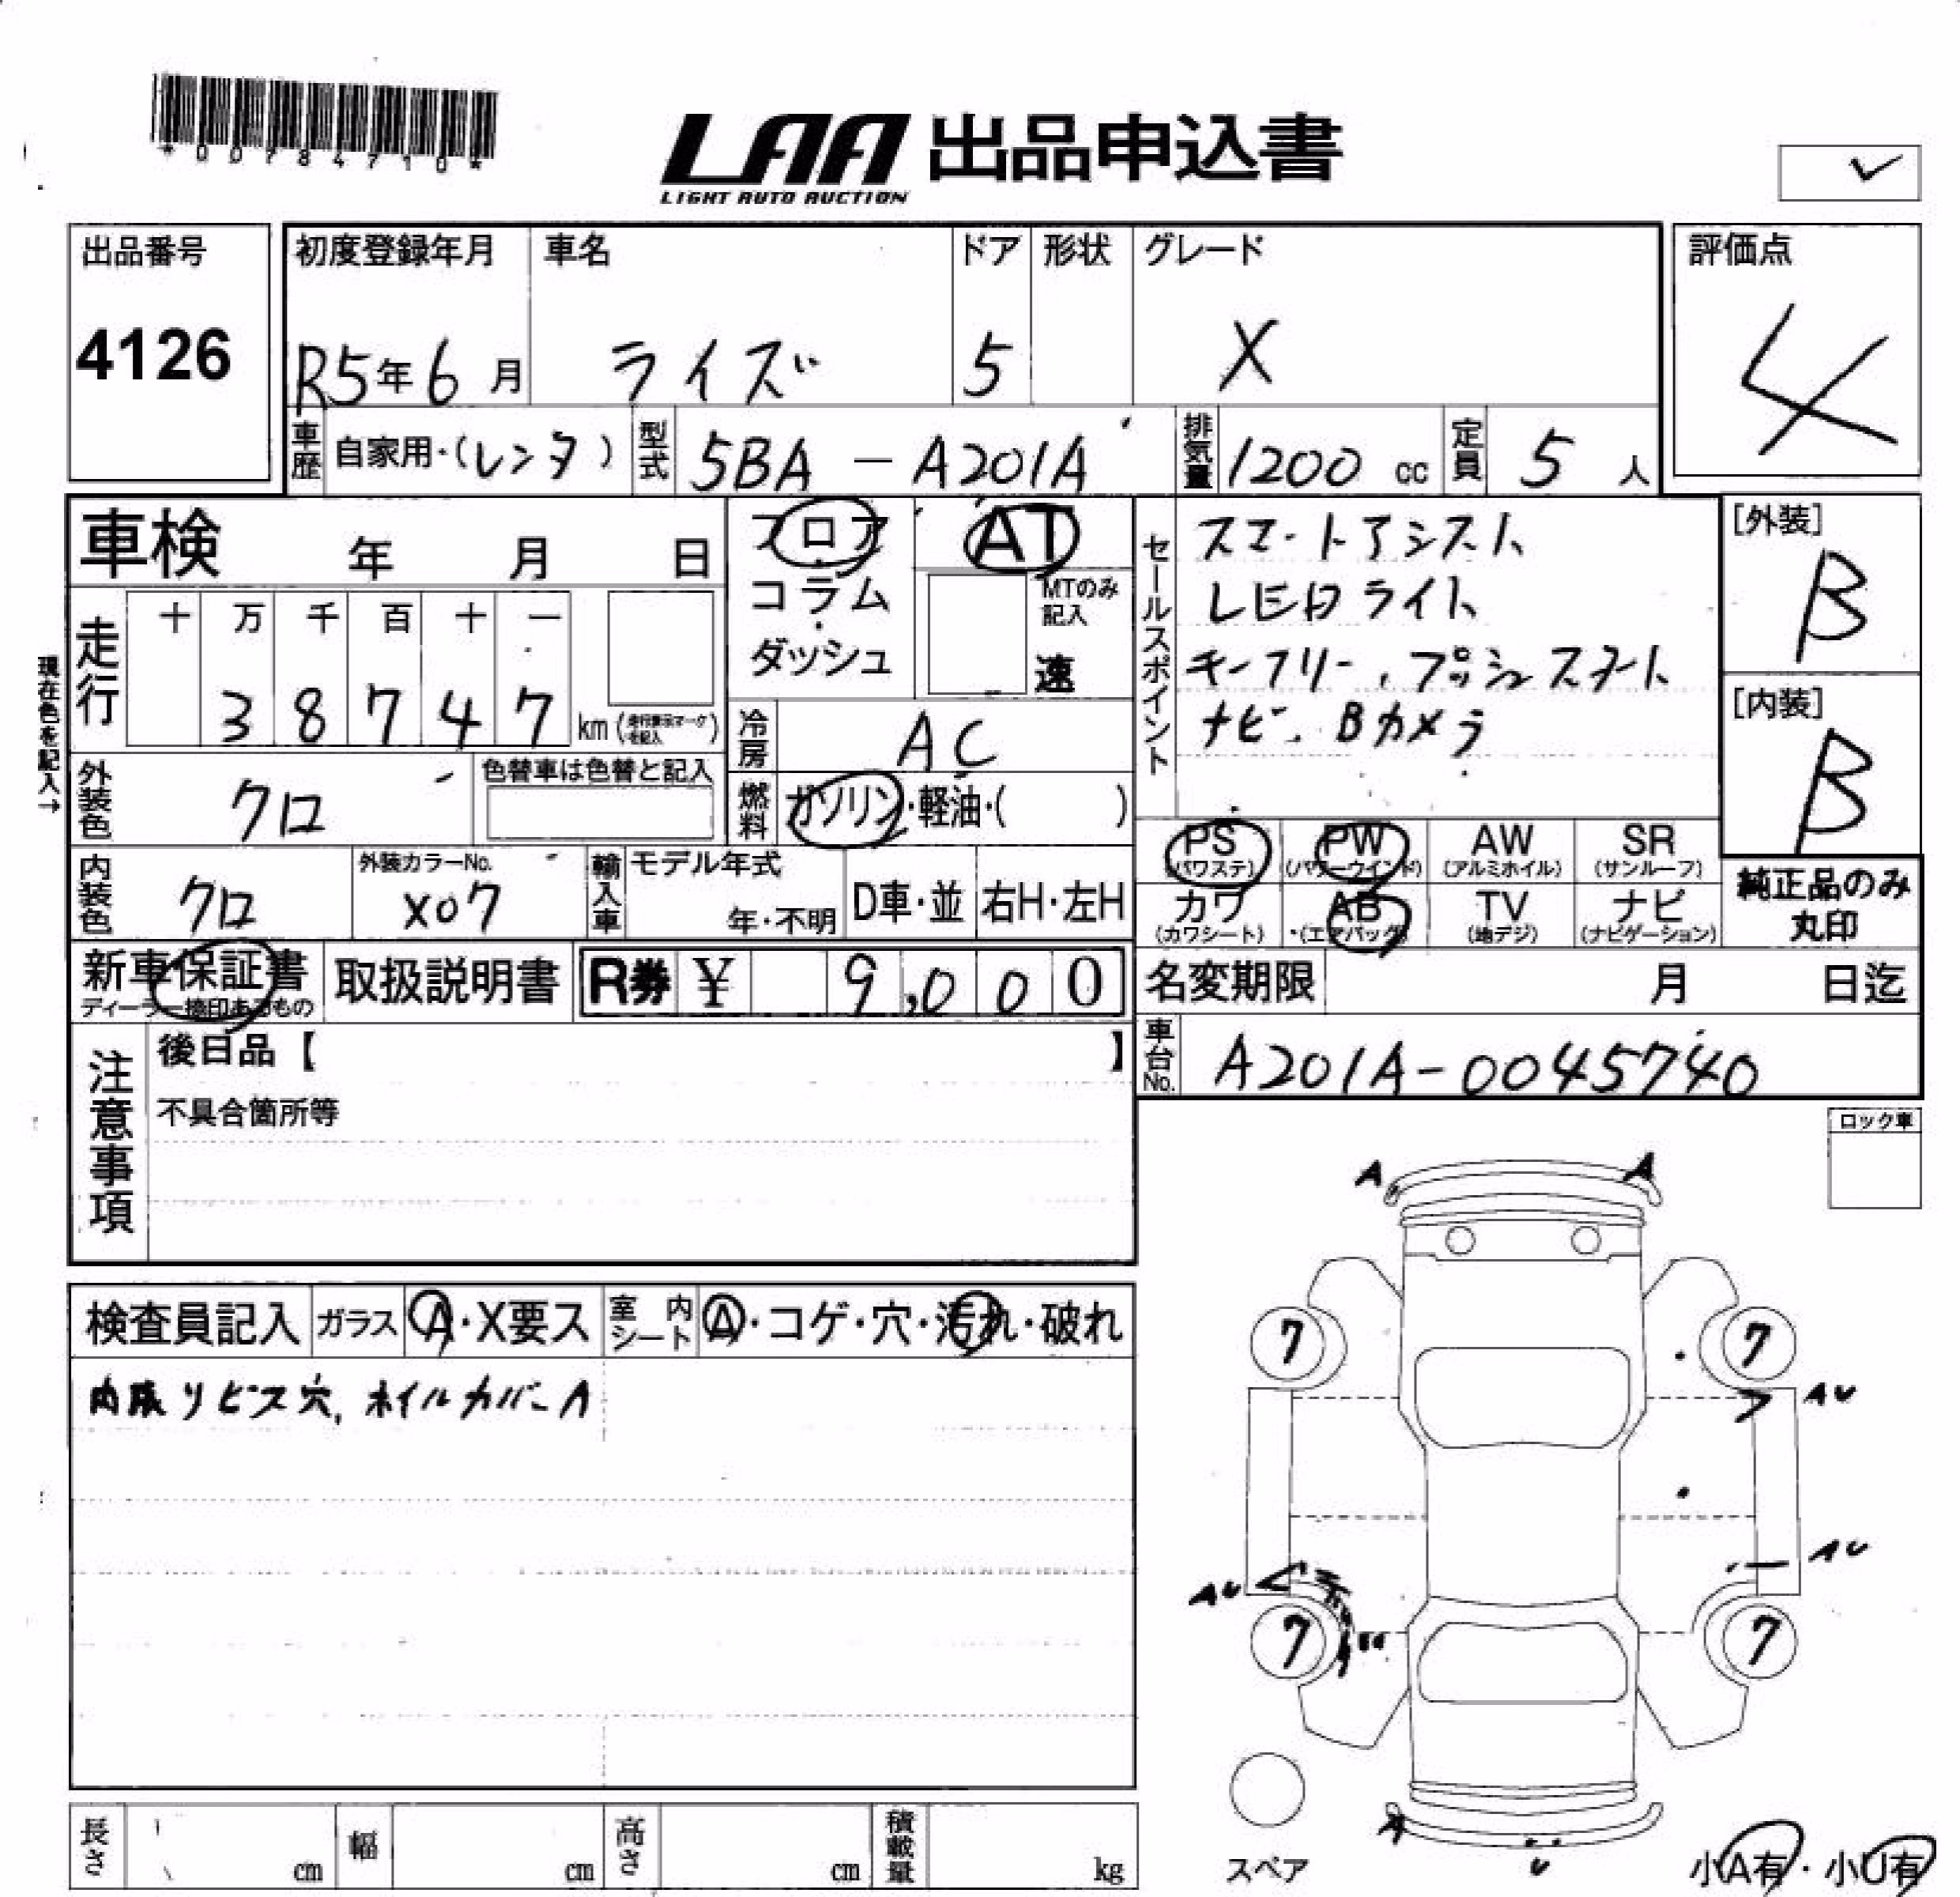 *00784710*
LAA 出品申込書
LIGHT AUTO AUCTION
出品番号
4126
初度登録年月
R5年6月
車名
ライズ
ドア
5
形状
グレード
X
評価点
4
車歴 自家用・(レンタ)
型式 5BA-A201A
排気量 1200 cc
定員 5人
車検 年 月 日
フロア
コラム
ダッシュ
AT
MTのみ記入
速
セールスポイント
スマートアシスト
LEDライト
キーフリー、プッシュスタート
ナビ、Bカメラ
[外装]
B
[内装]
B
現在色を記入→
走行
十 万 千 百 十 一
3 8 7 4 7 km(走行表示マークを記入)
冷房 AC
外装色 クロ
色替車は色替と記入
燃料 ガソリン・軽油・( )
PS (パワステ)
PW (パワーウインド)
AW (アルミホイル)
SR (サンルーフ)
カワ (カワシート)
AB (エアバッグ)
TV (地デジ)
ナビ (ナビゲーション)
純正品のみ
丸印
内装色 クロ
外装カラーNo.
X07
輸入車 モデル年式
年・不明
D車・並 右H・左H
新車保証書
ディーラー捺印あるもの
取扱説明書
R券 ¥ 9,000
名変期限 月 日迄
車台No. A201A-0045740
注意事項
後日品【 】
不具合箇所等
ロック車
検査員記入 ガラス A・X要ス 室内シート A・コゲ・穴・汚れ・破れ
内張リビス穴、ホイルカバーA
A A
7 7
AU
AU
AU
7 7
A
U
スペア
小A有・小U有
長さ cm 幅 cm 高さ cm 積載量 kg